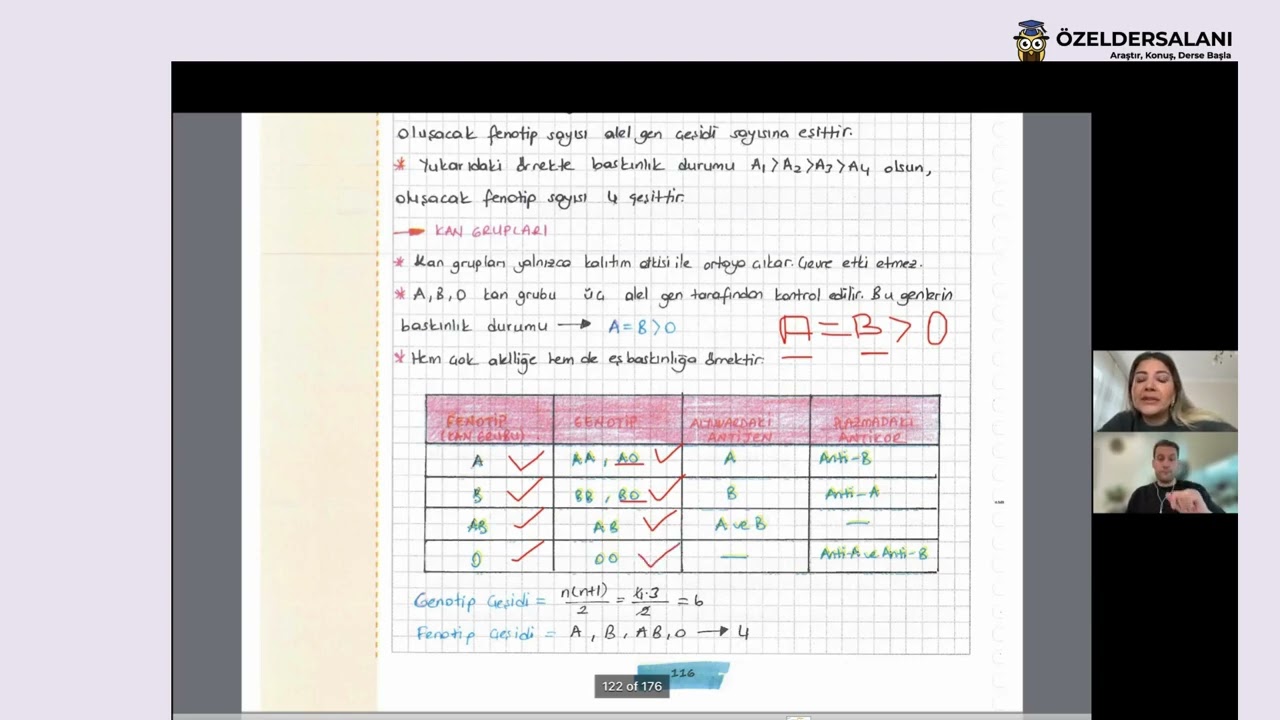 ÖZELDERSALANI
Araştır, Konuş, Derse Başla
oluşacak fenotip sayısı alel gen çeşidi sayısına eşittir.
* Yukarıdaki örnekte baskınlık durumu A1>A2>A3>A4 olsun,
oluşacak fenotip sayısı 4 çeşittir.
→ KAN GRUPLARI
* Kan grupları yalnızca kalıtım etkisi ile ortaya çıkar. Çevre etki etmez.
* A, B, O kan grubu üç alel gen tarafından kontrol edilir. Bu genlerin
baskınlık durumu → A=B>O A=B>O
* Hem çok alelliğe hem de eş baskınlığa örnektir.
FENOTİP (KAN GRUBU) GENOTİP ALYUVARDAKİ ANTİJEN PLAZMADAKİ ANTİKOR
A ✓ AA, AO ✓ A Anti-B
B ✓ BB, BO ✓ B Anti-A
AB ✓ AB ✓ A ve B —
O ✓ OO ✓ — Anti-A ve Anti-B
Genotip Çeşidi = n(n+1)/2 = 4·3/2 = 6
Fenotip Çeşidi = A, B, AB, O → 4
116
122 of 176